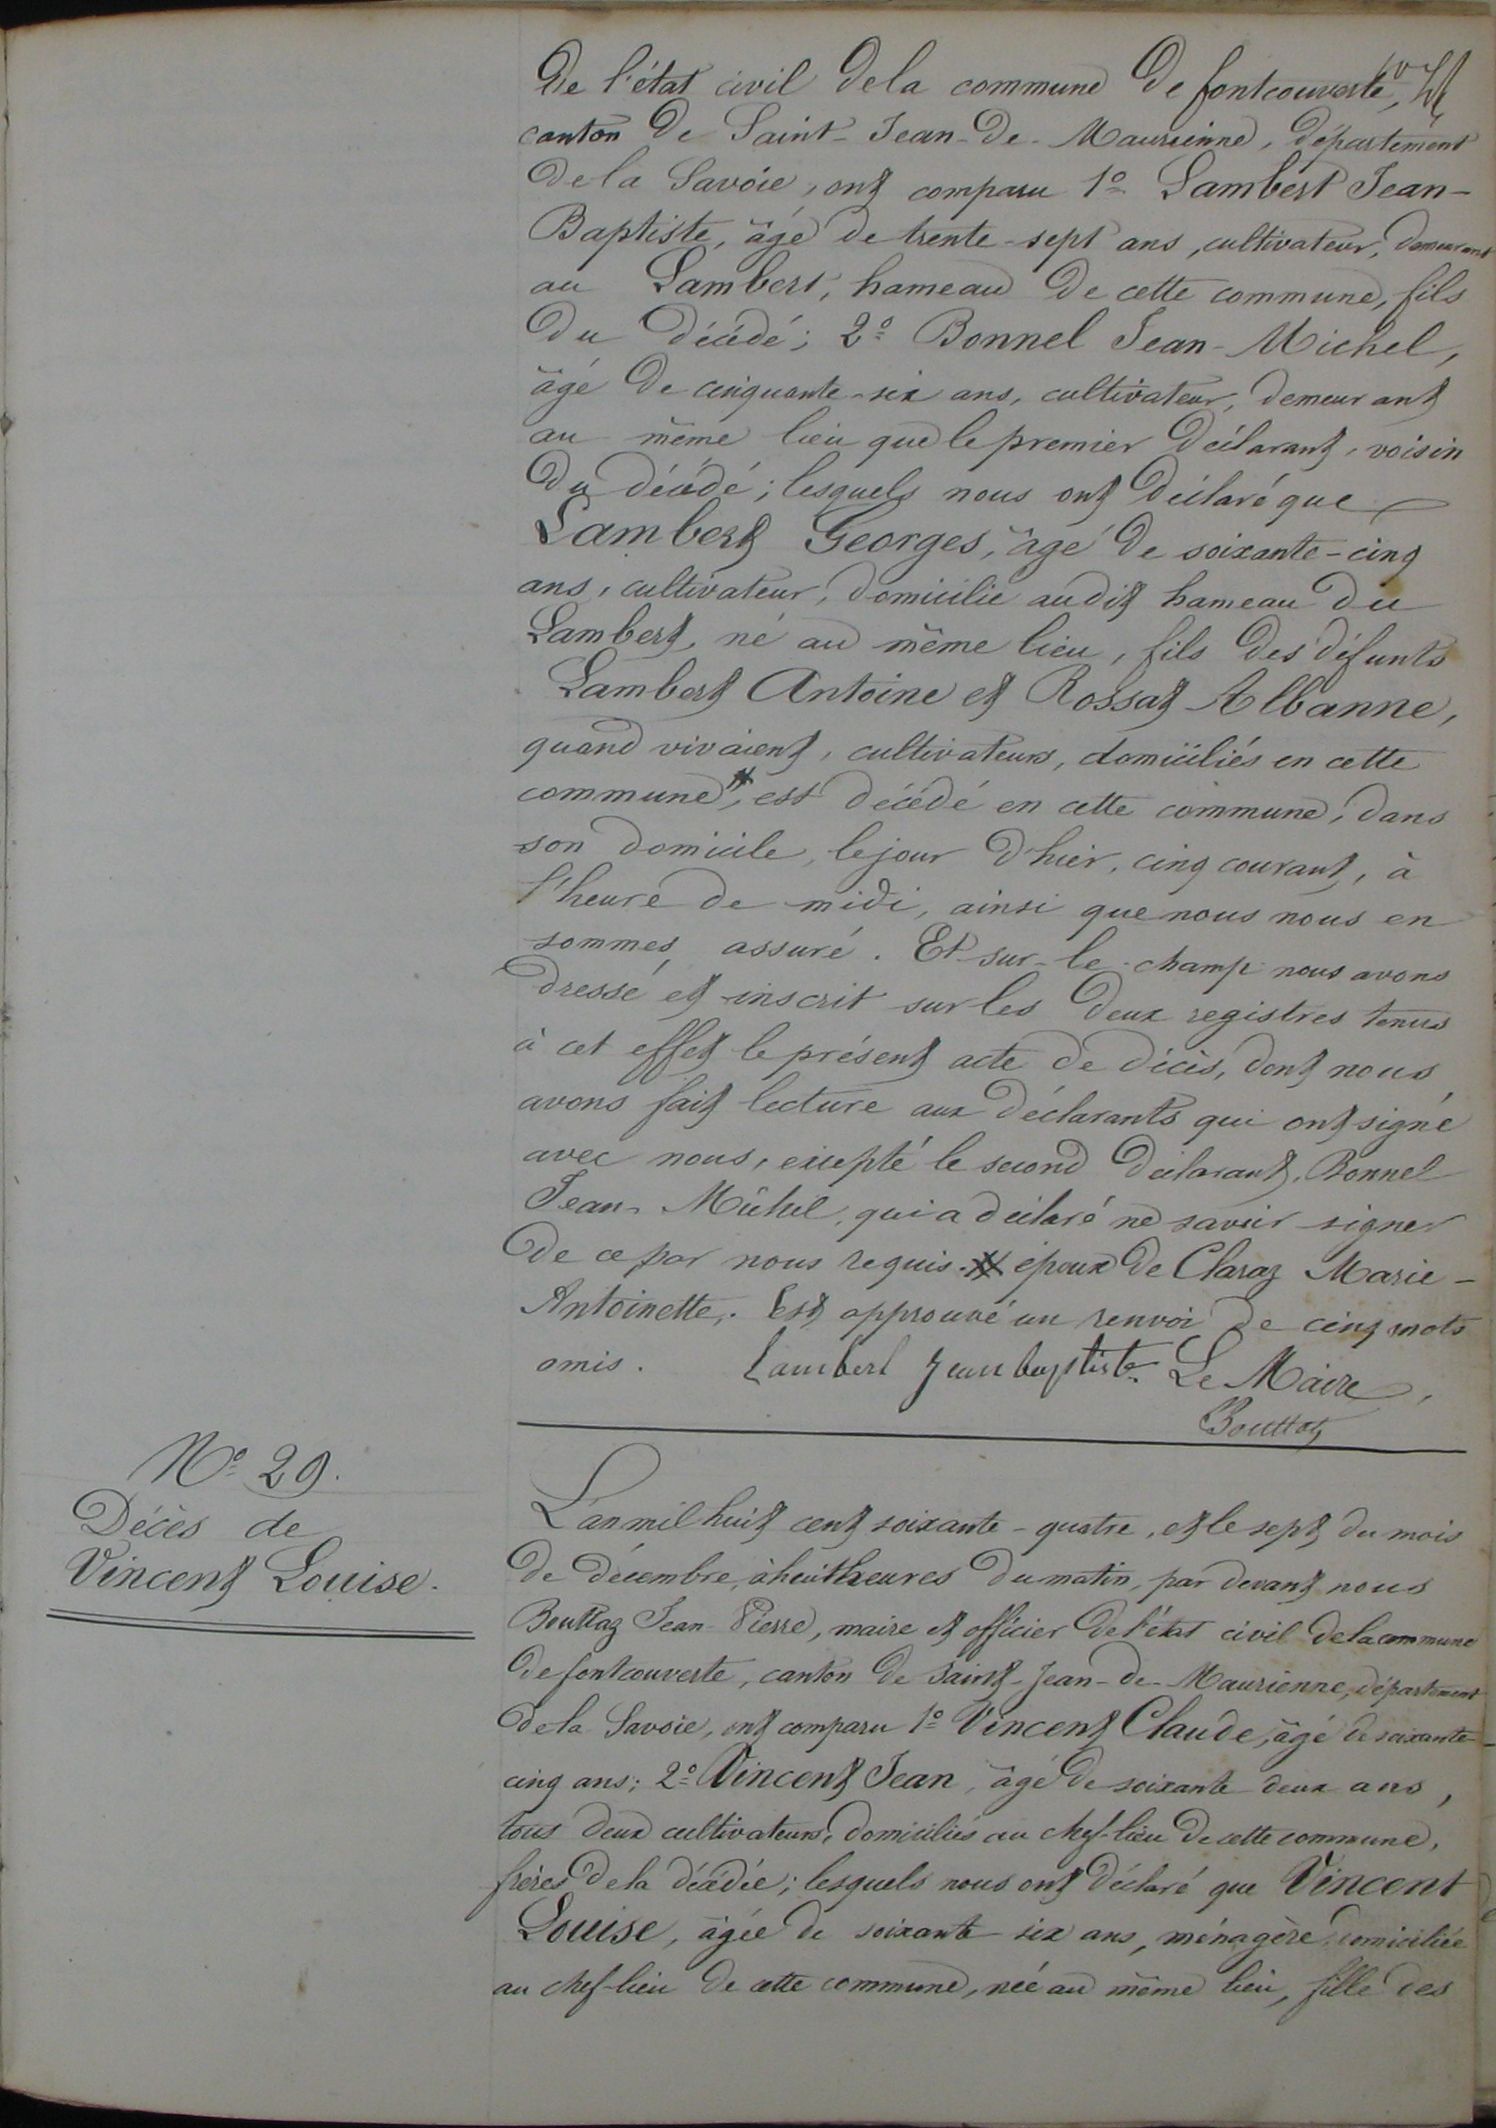 De l'état civil de la commune de fontcouverte,
canton de Saint-Jean-de-Maurienne, département
de la Savoie, ont comparu 1º Lambert Jean-
Baptiste, âgé de trente-sept ans, cultivateur, demeurant
au Lambert, hameau de cette commune, fils
du décédé; 2º Bonnel Jean-Michel,
âgé de cinquante-six ans, cultivateur, demeurant
au même lieu que le premier déclarant, voisin
du décédé; lesquels nous ont déclaré que
Lambert Georges, âgé de soixante-cinq
ans, cultivateur, domicilié audit hameau du
Lambert, né au même lieu, fils des défunts
Lambert Antoine et Rossat Albanne,
quand vivaient, cultivateurs, domiciliés en cette
commune, # est décédé en cette commune, dans
son domicile, le jour d'hier, cinq courant, à
l'heure de midi, ainsi que nous nous en
sommes assuré. Et sur-le-champ nous avons
dressé et inscrit sur les deux registres tenus
à cet effet le présent acte de décès, dont nous
avons fait lecture aux déclarants qui ont signé
avec nous, excepté le second déclarant, Bonnel
Jean-Michel, qui a déclaré ne savoir signer
de ce par nous requis. # époux de Claraz Marie-
Antoinette. Est approuvé un renvoi de cinq mots
omis. Lambert Jean baptiste Le Maire,
Bouttaz
Nº 29.
Décès de
Vincent Louise.
L'an mil huit cent soixante-quatre, et le sept du mois
de décembre, à huit heures du matin, par devant nous
Bouttaz Jean-Pierre, maire et officier de l'état civil de la commune
de fontcouverte, canton de Saint-Jean-de-Maurienne, département
de la Savoie, ont comparu 1º Vincent Claude, âgé de soixante
cinq ans; 2º Vincent Jean, âgé de soixante deux ans,
tous deux cultivateurs, domiciliés au chef-lieu de cette commune,
frères de la décédée; lesquels nous ont déclaré que Vincent
Louise, âgée de soixante six ans, ménagère, domiciliée
au chef-lieu de cette commune, née au même lieu, fille des